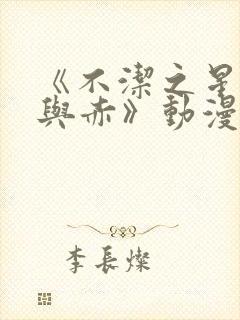 《不潔之星
與赤》動漫
李長燦